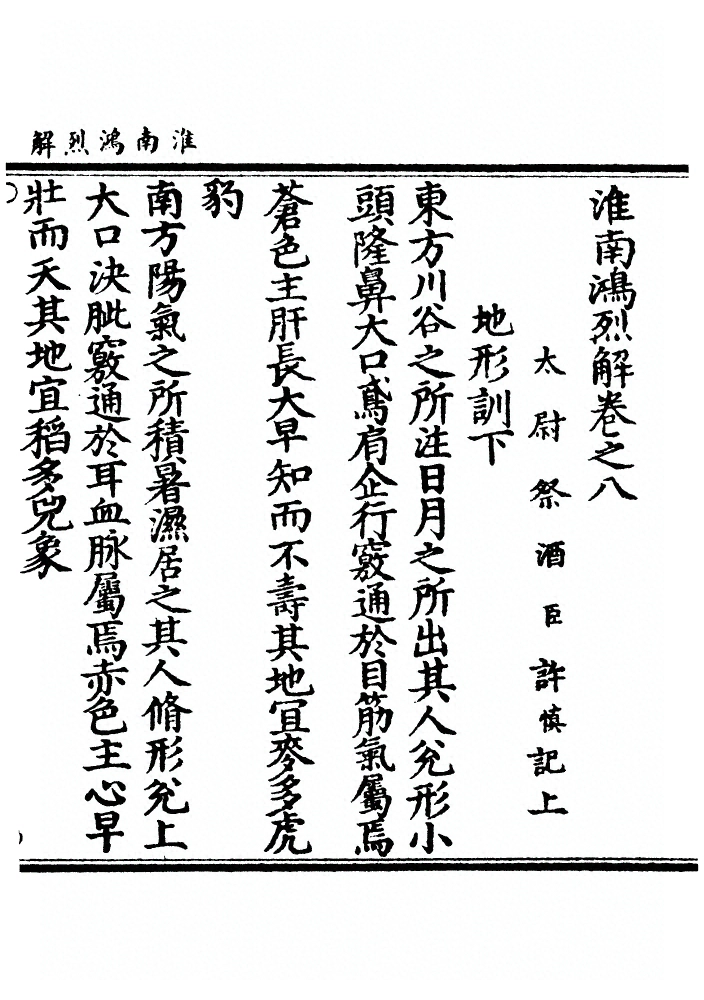 淮南鴻烈解
淮南鴻烈解卷之八
太尉祭酒臣許慎記上
地形訓下
東方川谷之所注日月之所出其人兊形小
頭隆鼻大口鳶肩企行竅通於目筋氣屬焉
蒼色主肝長大早知而不壽其地宜麥多虎
豹
南方陽氣之所積暑濕居之其人脩形兊上
大口決眦竅通於耳血脉屬焉赤色主心早
壯而夭其地宜稻多兕象